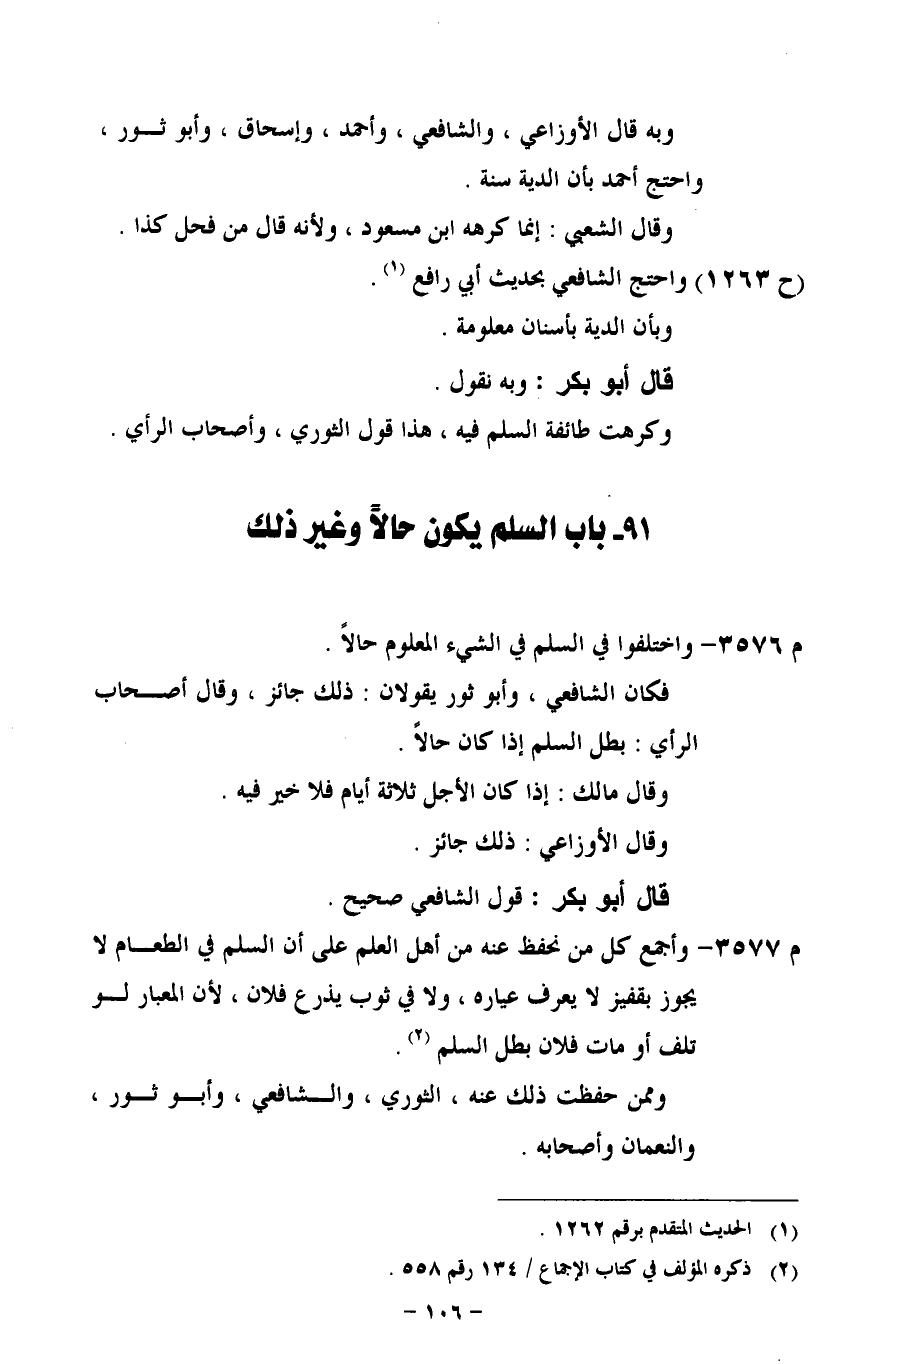 وبه قال الأوزاعي ، والشافعي ، وأحمد ، وإسحاق ، وأبو ثـــور ،
واحتج أحمد بأن الدية سنة .
وقال الشعبي : إنما كرهه ابن مسعود ، ولأنه قال من فحل كذا .
(ح ١٢٦٣) واحتج الشافعي بحديث أبي رافع (١) .
وبأن الدية بأسنان معلومة .
قال أبو بكر : وبه نقول .
وكرهت طائفة السلم فيه ، هذا قول الثوري ، وأصحاب الرأي .
٩١ـ باب السلم يكون حالاً وغير ذلك
م ٣٥٧٦– واختلفوا في السلم في الشيء المعلوم حالاً .
فكان الشافعي ، وأبو ثور يقولان : ذلك جائز ، وقال أصـــحاب
الرأي : بطل السلم إذا كان حالاً .
وقال مالك : إذا كان الأجل ثلاثة أيام فلا خير فيه .
وقال الأوزاعي : ذلك جائز .
قال أبو بكر : قول الشافعي صحيح .
م ٣٥٧٧– وأجمع كل من نحفظ عنه من أهل العلم على أن السلم في الطعـــام لا
يجوز بقفيز لا يعرف عياره ، ولا في ثوب يذرع فلان ، لأن المعبار لـــو
تلف أو مات فلان بطل السلم (٢) .
وممن حفظت ذلك عنه ، الثوري ، والـــشافعي ، وأبـــو ثـــور ،
والنعمان وأصحابه .
(١) الحديث المتقدم برقم ١٢٦٢ .
(٢) ذكره المؤلف في كتاب الإجماع / ١٣٤ رقم ٥٥٨ .
– ١٠٦ –